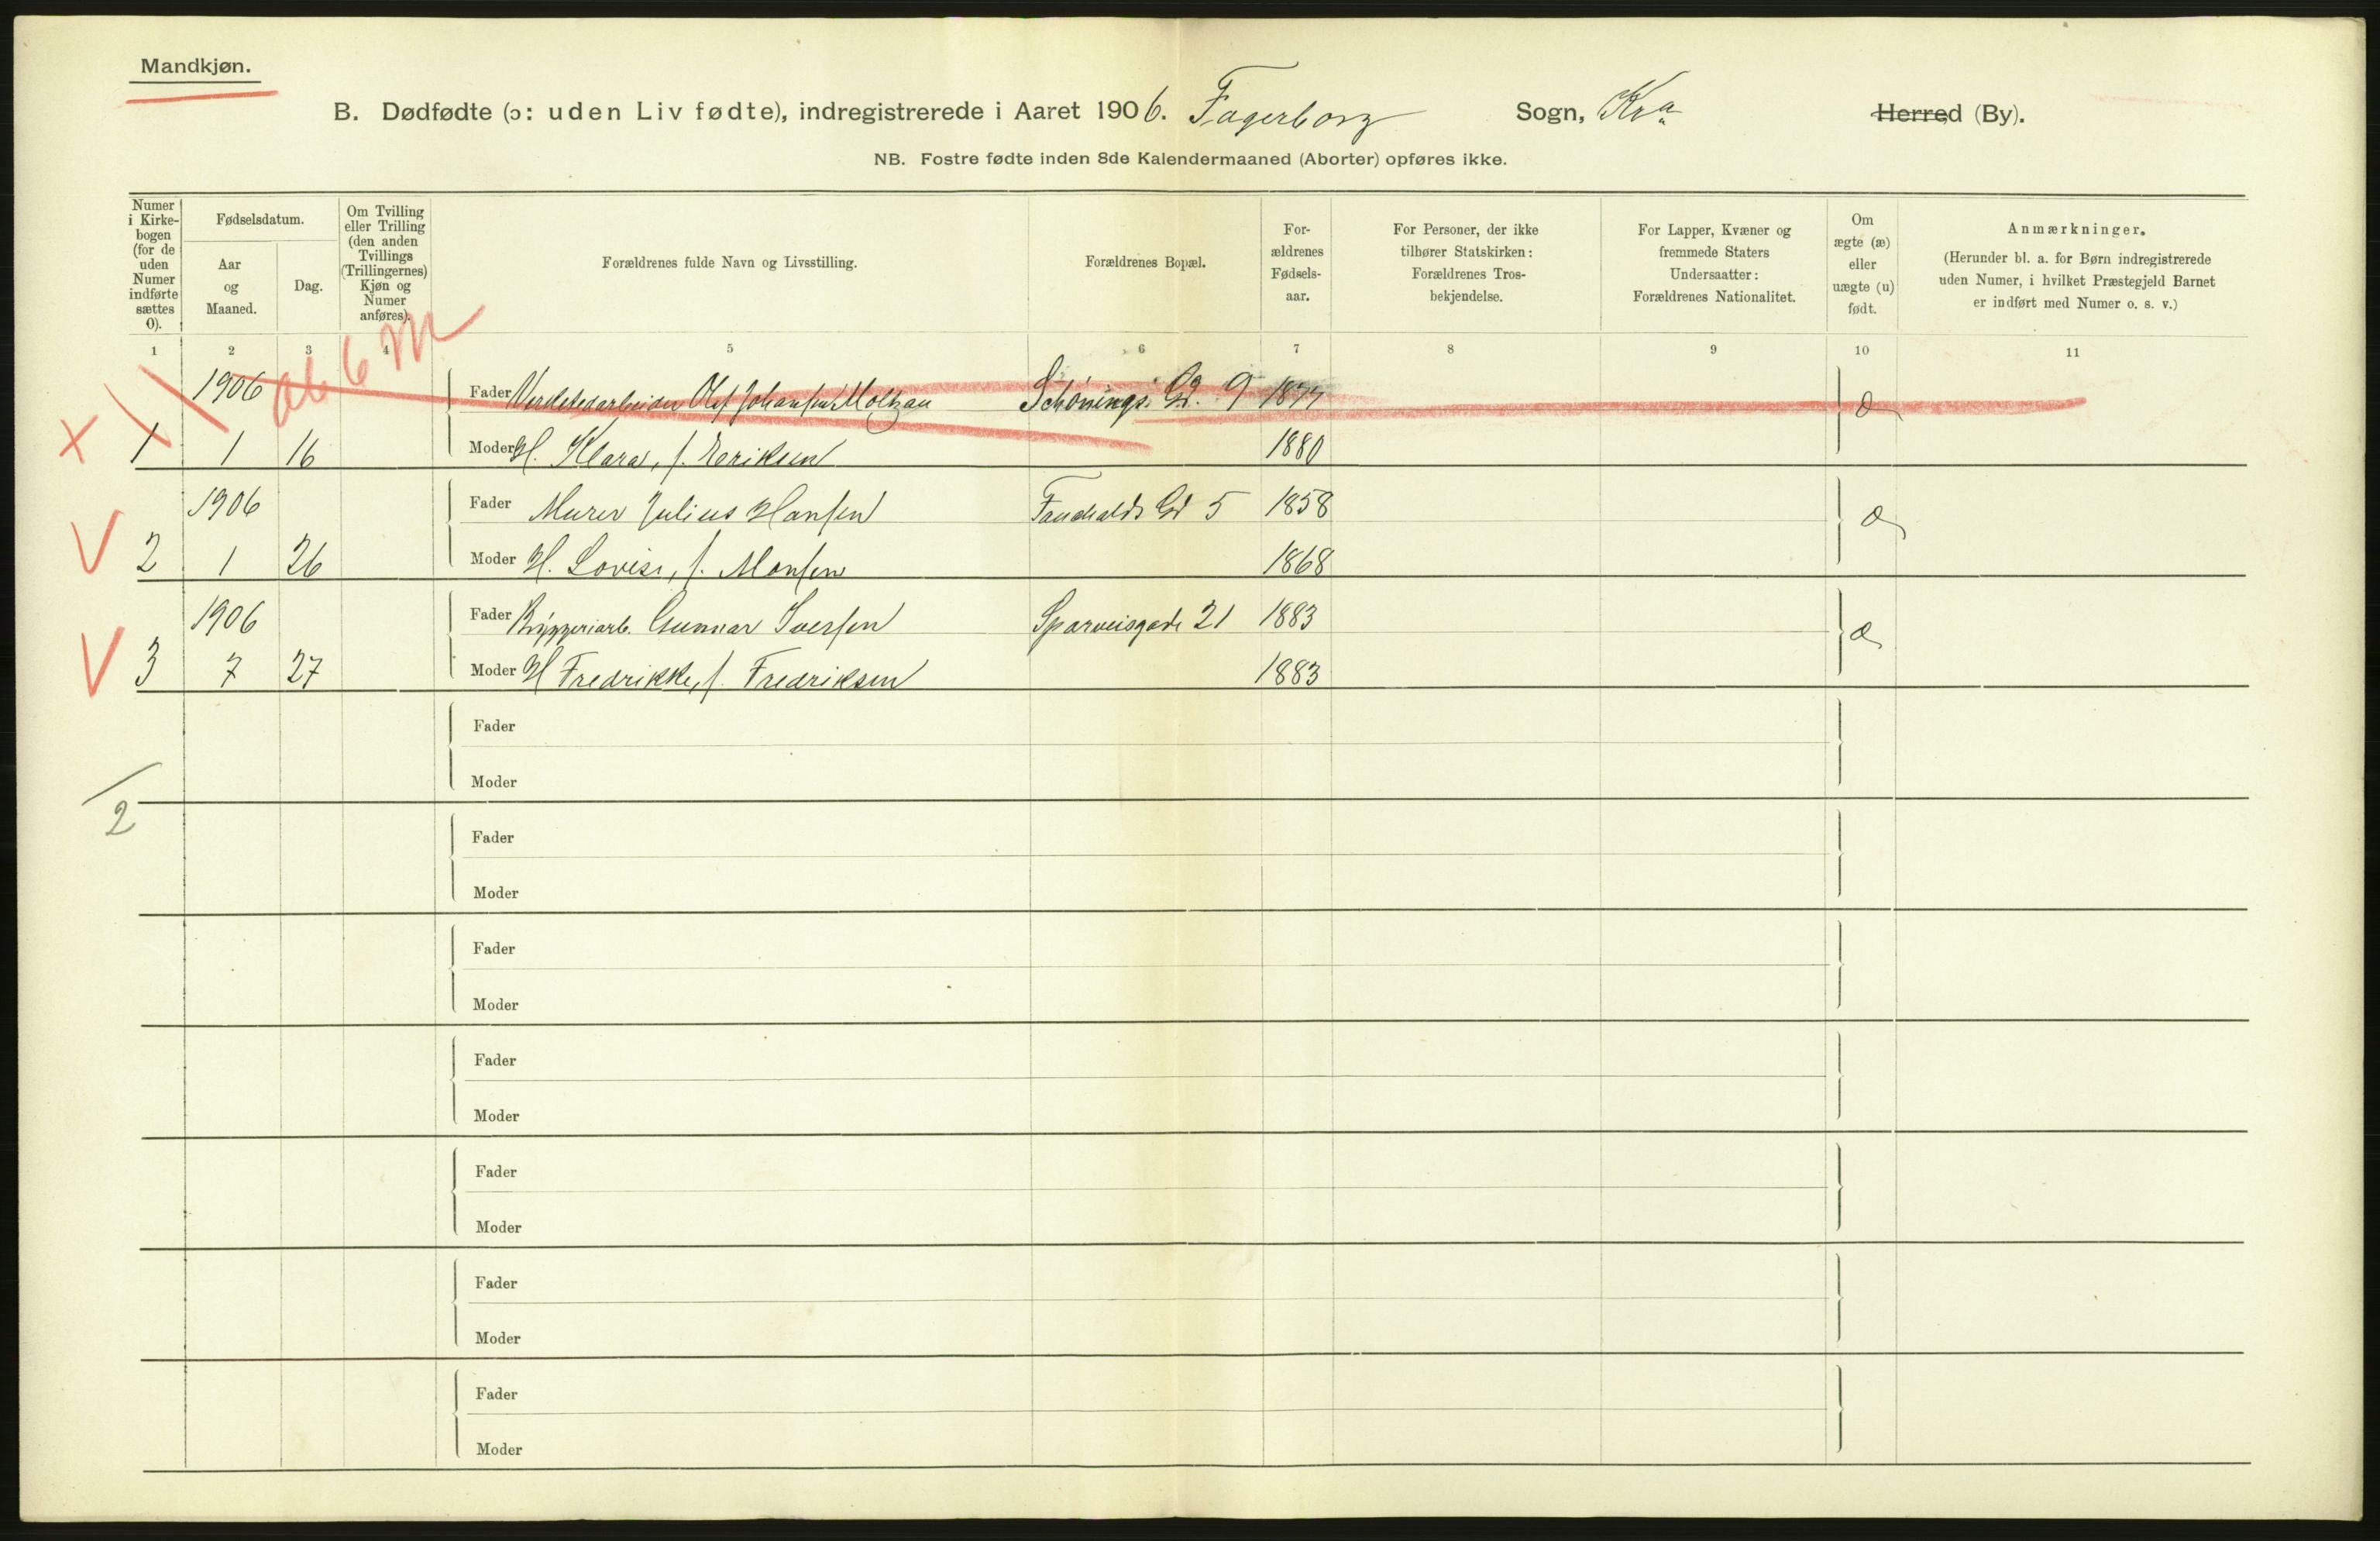 Mandkjøn.
B. Dødfødte (ɔ: uden Liv fødte), indregistrerede i Aaret 1906. Fagerborg Sogn, Kra Herred (By).
NB. Fostre fødte inden 8de Kalendermaaned (Aborter) opføres ikke.
Numer i Kirkebogen (for de uden Numer indførte sættes 0).
Fødselsdatum.
Aar og Maaned.
Dag.
Om Tvilling eller Trilling (den anden Tvillings (Trillingernes) Kjøn og Numer anføres).
Forældrenes fulde Navn og Livsstilling.
Forældrenes Bopæl.
Forældrenes Fødselsaar.
For Personer, der ikke tilhører Statskirken: Forældrenes Trosbekjendelse.
For Lapper, Kvæner og fremmede Staters Undersaatter: Forældrenes Nationalitet.
Om ægte (æ) eller uægte (u) født.
Anmærkninger.
(Herunder bl. a. for Børn indregistrerede uden Numer, i hvilket Præstegjeld Barnet er indført med Numer o. s. v.)
1 2 3 4 5 6 7 8 9 10 11
ab 6 M
1906 Fader Olaf Johansen Moltzau Schønings Gd. 9 1877 æ
1 1 16 Moder H. Klara, f. Eriksen 1880
1906 Fader Murer Julius Hansen Fauchalds Gd 5 1858 æ
2 1 26 Moder H. Lovise, f. Monsen 1868
1906 Fader Bryggeriarb. Gunnar Iversen Sporveisgade 21 1883 æ
3 7 27 Moder H Fredrikke, f. Fredriksen 1883
Fader
Moder
2
Fader
Moder
Fader
Moder
Fader
Moder
Fader
Moder
Fader
Moder
Fader
Moder